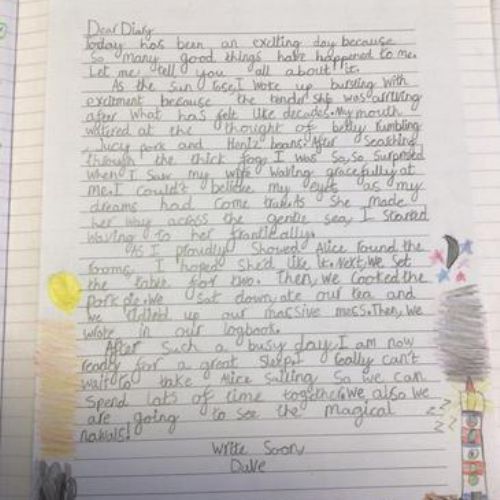 Dear Diary
Today has been an exciting day because
So many good things have happened to me.
Let me tell you all about it.
As the Sun rose,I woke up bursting with
excitment because the tender ship was arriving
after what has felt like decades.My mouth
watered at the thought of belly rumbling
, Jucy pork and Heniz beans.After Searching
through the thick fog, I was So, So Surprised
when I Saw my wife waving gracefully at
me.I could't believe my eyes as my
dreams had come true.As She made
her way across the gentle sea, I Started
waving to her frantically.
As I proudly Showed Alice round the
rooms, I hoped She'd like it.Next, we Set
the table for two. Then, we Cooked the
pork pie.We Sat down, ate our tea and
we up our massive mess.Then, We
wrote in our logbook.
After Such a busy day, I am now
ready for a great Sleep.I really can't
wait to take Alice Sailing So we can
Spend lots of time together.We also We
are going to See the magical
narwals!
Write Soon,
Dave
z z
z z